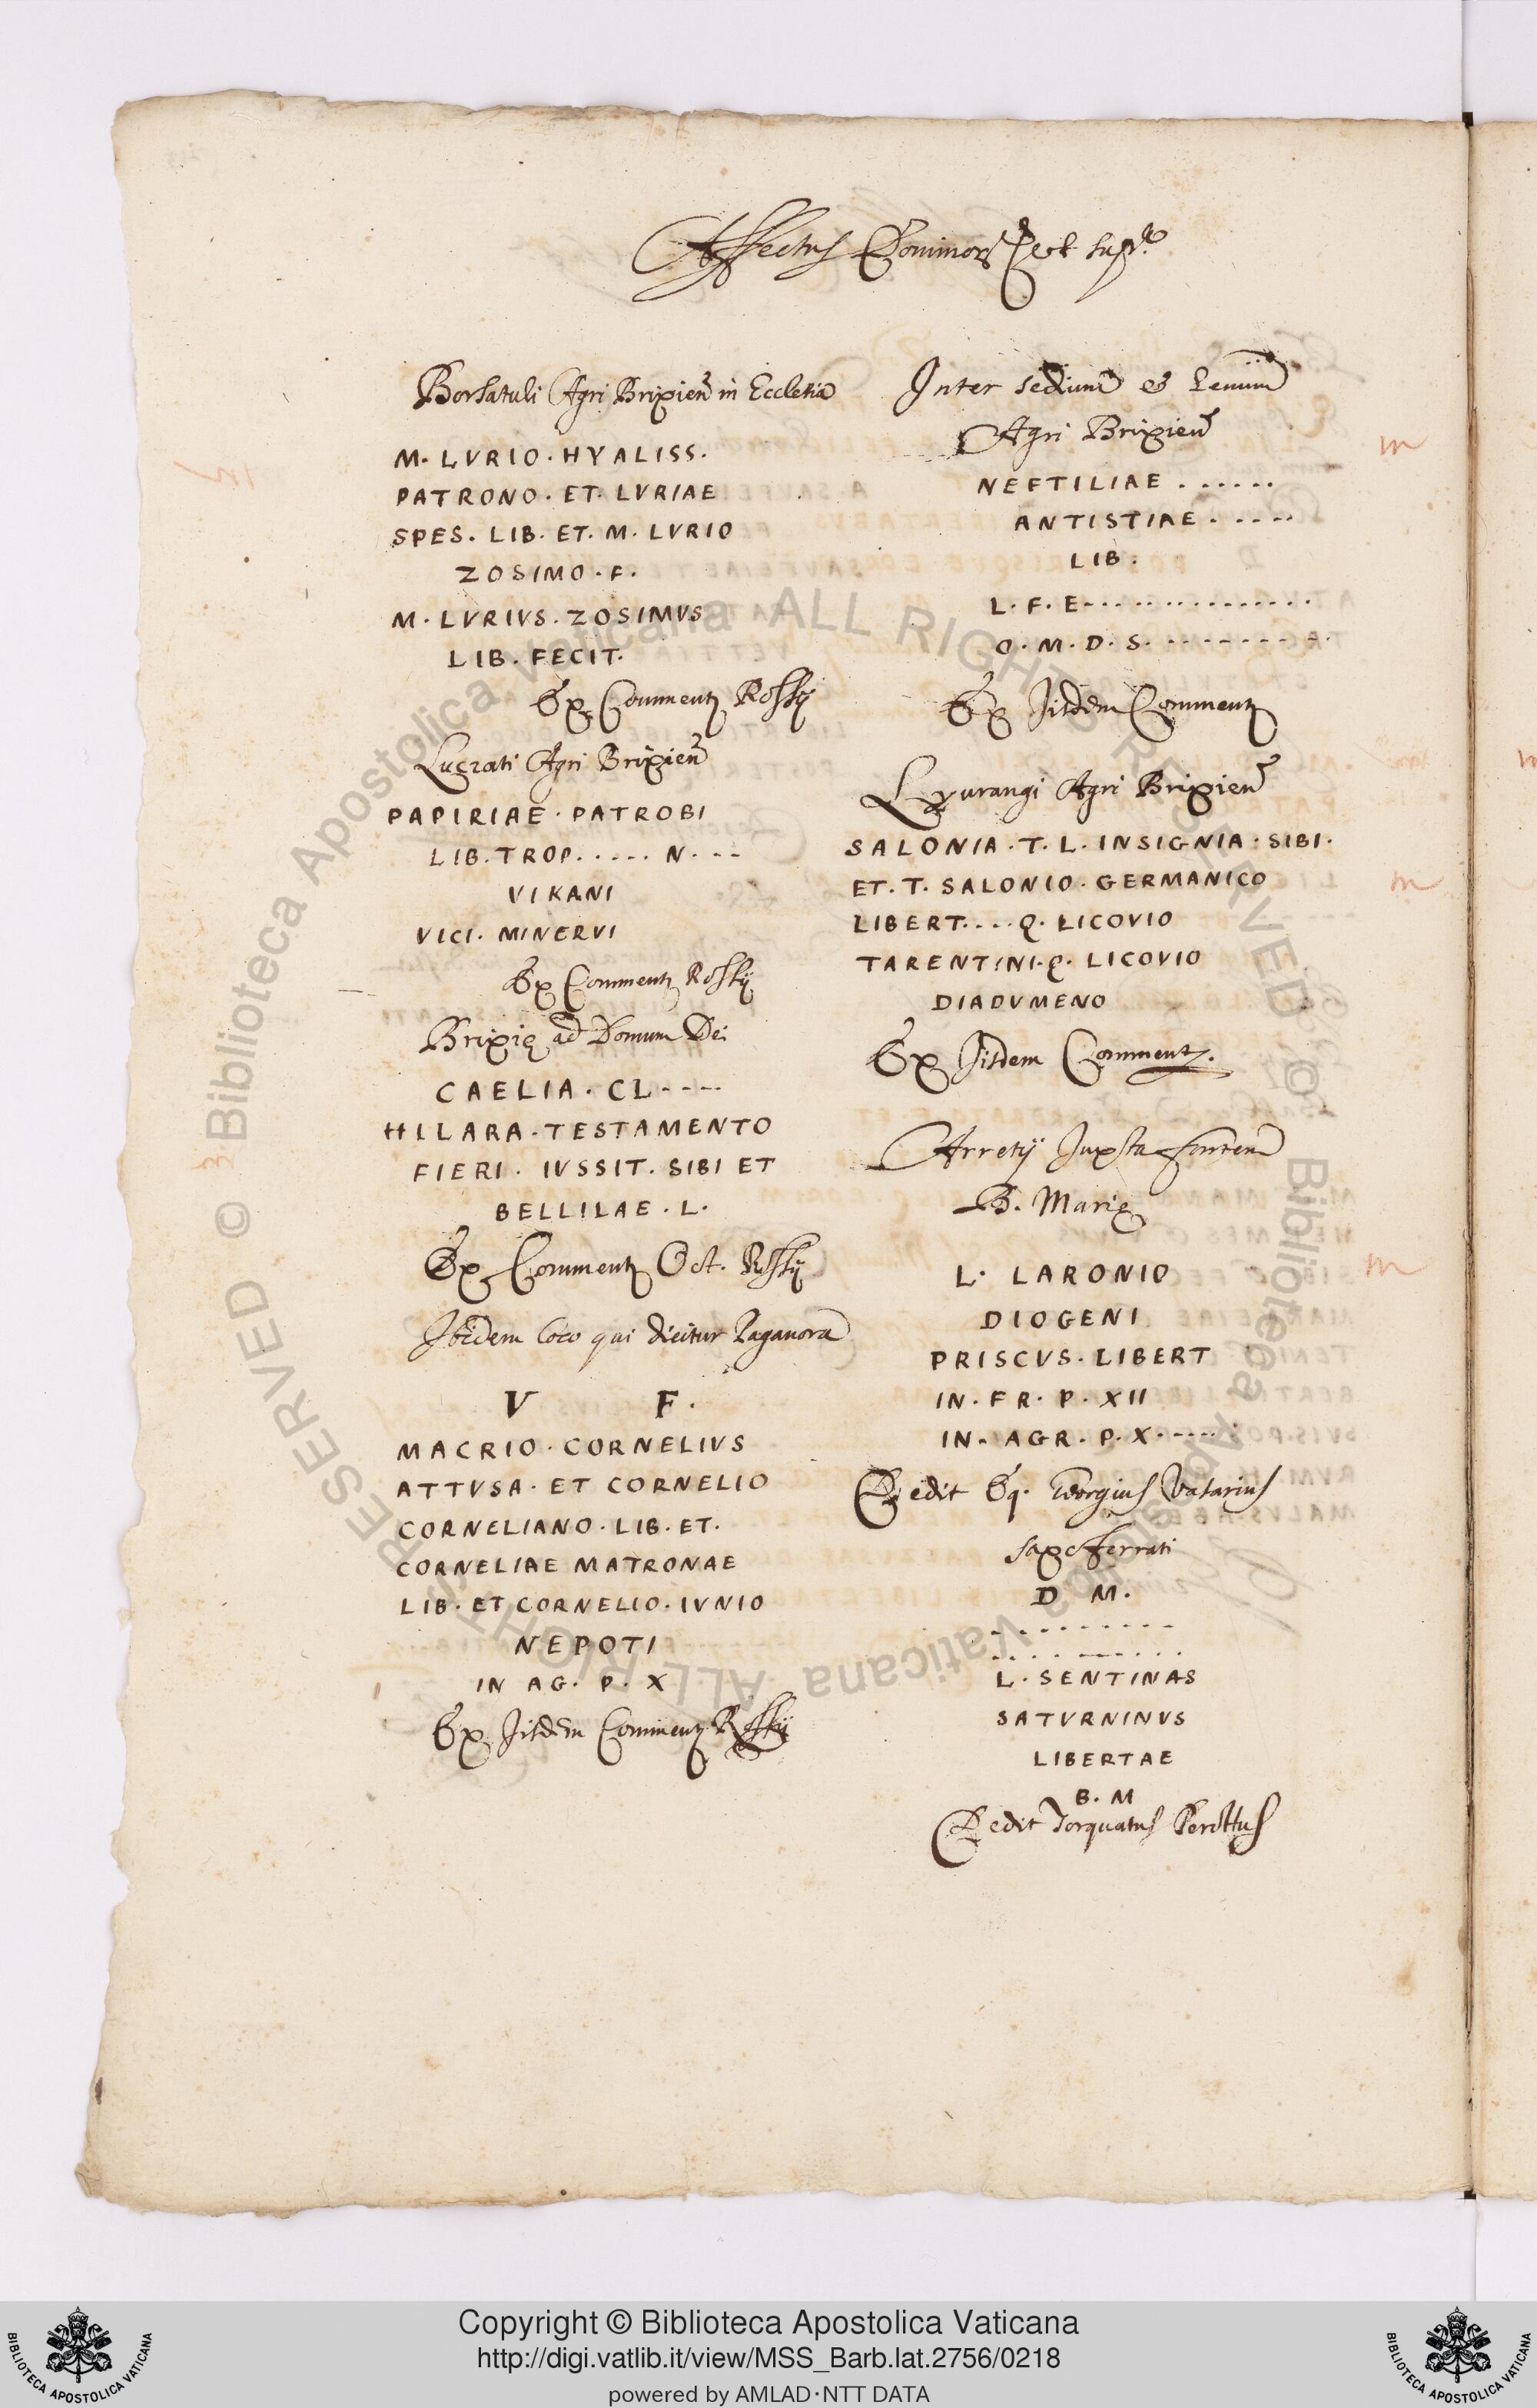 Affectus
Borsatuli Agri Brixien in Ecclesia
M. LVRIO. HYALISS.
PATRONO. ET. LVRIAE
SPES. LIB. ET. M. LVRIO
ZOSIMO. F.
M. LVRIVS. ZOSIMVS
LIB. FECIT.
Ex Comment Rossij
Lucrati Agri Brixien
PAPIRIAE. PATROBI
LIB. TROP. . . . . . N. - - -
VIKANI
VICI. MINERVI
Ex Comment Rossij
Brixię ad Domum Dei
CAELIA. CL - - - -
HILARA. TESTAMENTO
FIERI. IVSSIT. SIBI ET
BELLILAE. L.
Ex Comment Oct. Rossij
Ibidem loco qui dicitur Paganora
V F.
MACRIO. CORNELIVS
ATTVSA. ET CORNELIO
CORNELIANO. LIB. ET.
CORNELIAE MATRONAE
LIB. ET CORNELIO. IVNIO
NEPOTI
IN AG. P. X
Ex Jisdem Comment Rossij
Inter sedium &
Agri Brixien
NEFTILIAE . . . . . .
ANTISTIAE . . . . .
LIB.
L. F. E - - - - - - - - - - - - - -
O. M. D. S. - - - - - - - - - -
Ex Jisdem Comment
Agri Brixien
SALONIA. T. L. INSIGNIA. SIBI.
ET. T. SALONIO. GERMANICO
LIBERT. . . . Q. LICOVIO
TARENTINI. Q. LICOVIO
DIADVMENO
Ex Jisdem Comment.
Arretij Juxta fontem
B. Marię
L. LARONIO
DIOGENI
PRISCVS. LIBERT
IN. FR. P. XII
IN. AGR. P. X. - - - -
Dedit Eq. Georgius Vasarius
saxoferrati
D M.
- - - - - - - - - -
- - - - - - - - - -
L. SENTINAS
SATVRNINVS
LIBERTAE
B. M
Dedit Torquatus Perottus
© Biblioteca Apostolica Vaticana ALL RIGHTS RESERVED © Biblioteca Apostolica Vaticana ALL RIGHTS RESERVED
Copyright © Biblioteca Apostolica Vaticana
http://digi.vatlib.it/view/MSS_Barb.lat.2756/0218
powered by AMLAD·NTT DATA
BIBLIOTECA APOSTOLICA VATICANA
BIBLIOTECA APOSTOLICA VATICANA